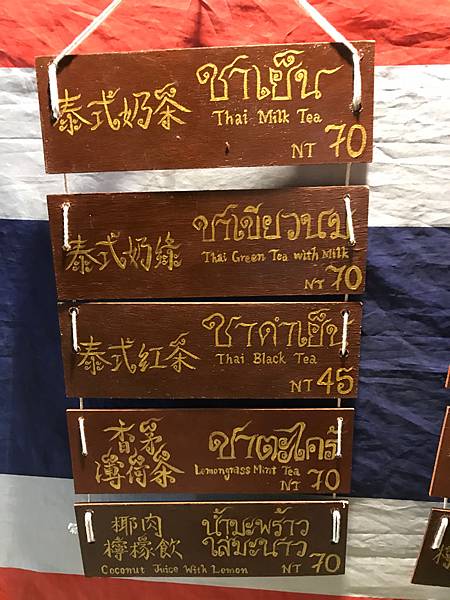 泰式奶茶
ชาเย็น
Thai Milk Tea
NT 70
泰式奶綠
ชาเขียวนม
Thai Green Tea with Milk
NT 70
泰式紅茶
ชาดำเย็น
Thai Black Tea
NT 45
香茅
薄荷茶
ชาตะไคร้
Lemongrass Mint Tea
NT 70
椰肉
檸檬飲
น้ำมะพร้าว
ใส่มะนาว
Coconut Juice With Lemon
NT 70